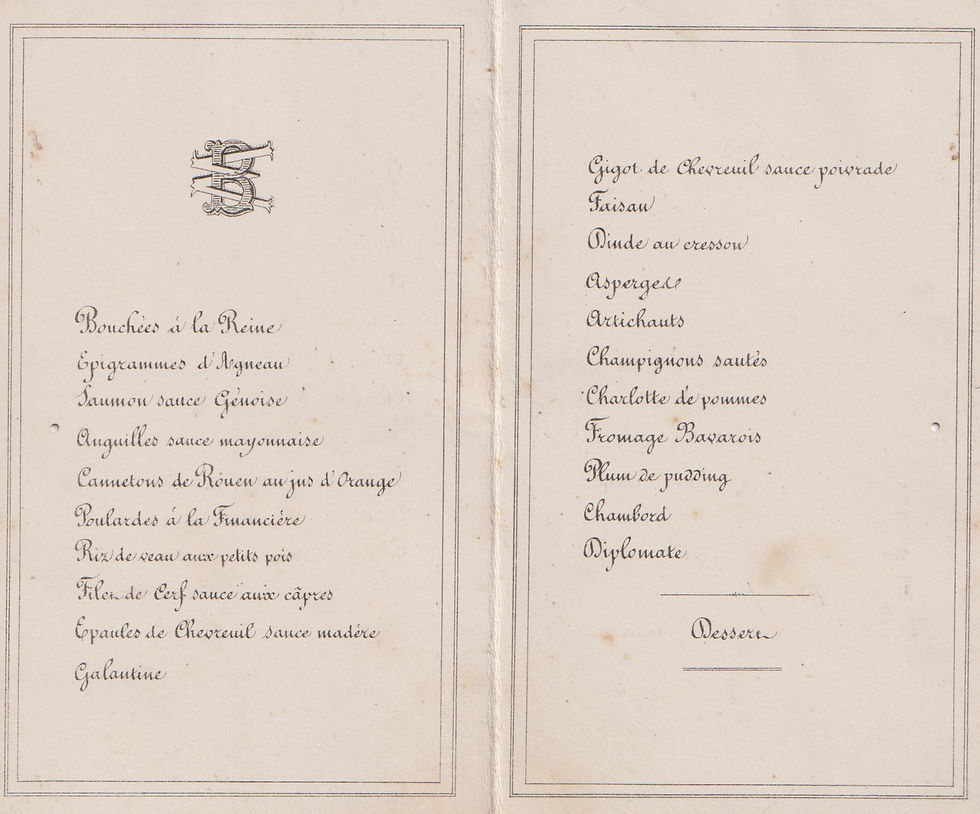 Bouchées à la Reine
Epigrammes d'Agneau
Saumon sauce Génoise
Anguilles sauce mayonnaise
Cannetons de Rouen au jus d'Orange
Poulardes à la Financière
Riz de veau aux petits pois
Filet de Cerf sauce aux câpres
Epaules de Chevreuil sauce madère
Galantine
Gigot de Chevreuil sauce poivrade
Faisan
Dinde au cresson
Asperges
Artichauts
Champignons sautés
Charlotte de pommes
Fromage Bavarois
Plum de pudding
Chambord
Diplomate
Dessert